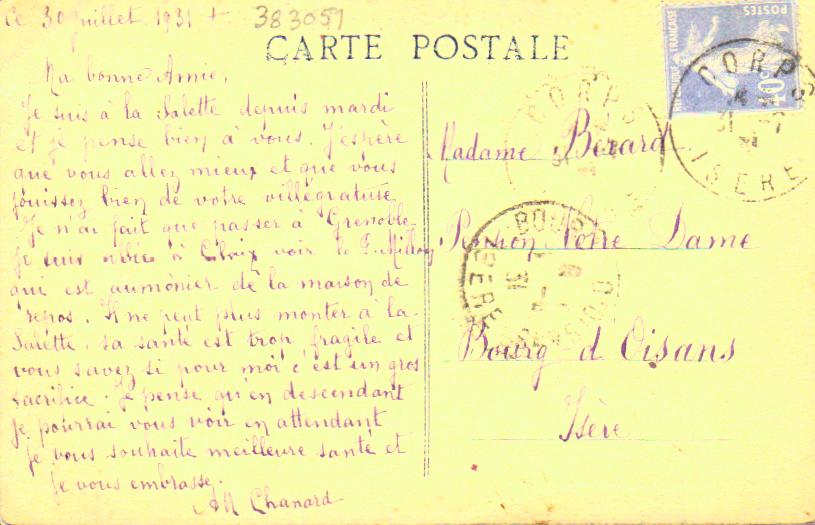 Ce 30 juillet 1931 + 383051
CARTE POSTALE
Ma bonne Amie,
Je suis à la Salette depuis mardi
et je pense bien à vous. J'espère
que vous allez mieux et que vous
jouissez bien de votre villégiature
Je n'ai fait que passer à Grenoble
Je suis allée à Claix voir le P. Milloz
qui est aumônier de la maison de
repos. Il ne peut plus monter à la
Salette, sa santé est trop fragile et
vous savez si pour moi c'est un gros
sacrifice. Je pense qu'en descendant
je pourrai vous voir en attendant
je vous souhaite meilleure santé et
je vous embrasse.
AM Chanard
Madame Bérard
Pension Notre Dame
Bourg d'Oisans
Isère
POSTES
REPUBLIQUE FRANÇAISE
40c
CORPS
31
ISERE
CORPS
BOURG D'OISANS
31
ISERE